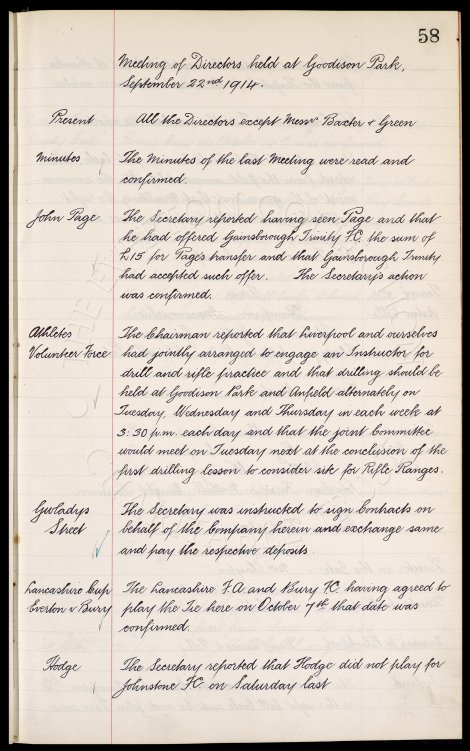 58
Meeting of Directors held at Goodison Park,
September 22nd 1914.
Present All the Directors except Messrs. Baxter & Green
Minutes The Minutes of the last Meeting were read and
confirmed.
John Page The Secretary reported having seen Page and that
he had offered Gainsborough Trinity F.C. the sum of
£15 for Page's transfer and that Gainsborough Trinity
had accepted such offer. The Secretary's action
was confirmed.
Athletes The Chairman reported that Liverpool and ourselves
Volunteer Force had jointly arranged to engage an Instructor for
drill and rifle practice and that drilling should be
held at Goodison Park and Anfield alternately on
Tuesday, Wednesday and Thursday in each week at
3:30 p.m. each day and that the joint Committee
would meet on Tuesday next at the conclusion of the
first drilling lesson to consider site for Rifle Ranges.
Gwladys The Secretary was instructed to sign Contracts on
Street behalf of the Company herein and exchange same
and pay the respective deposits.
Lancashire Cup The Lancashire F.A. and Bury F.C. having agreed to
Everton v Bury play the Tie here on October 7th that date was
confirmed.
Hodge The Secretary reported that Hodge did not play for
Johnstone F.C. on Saturday last